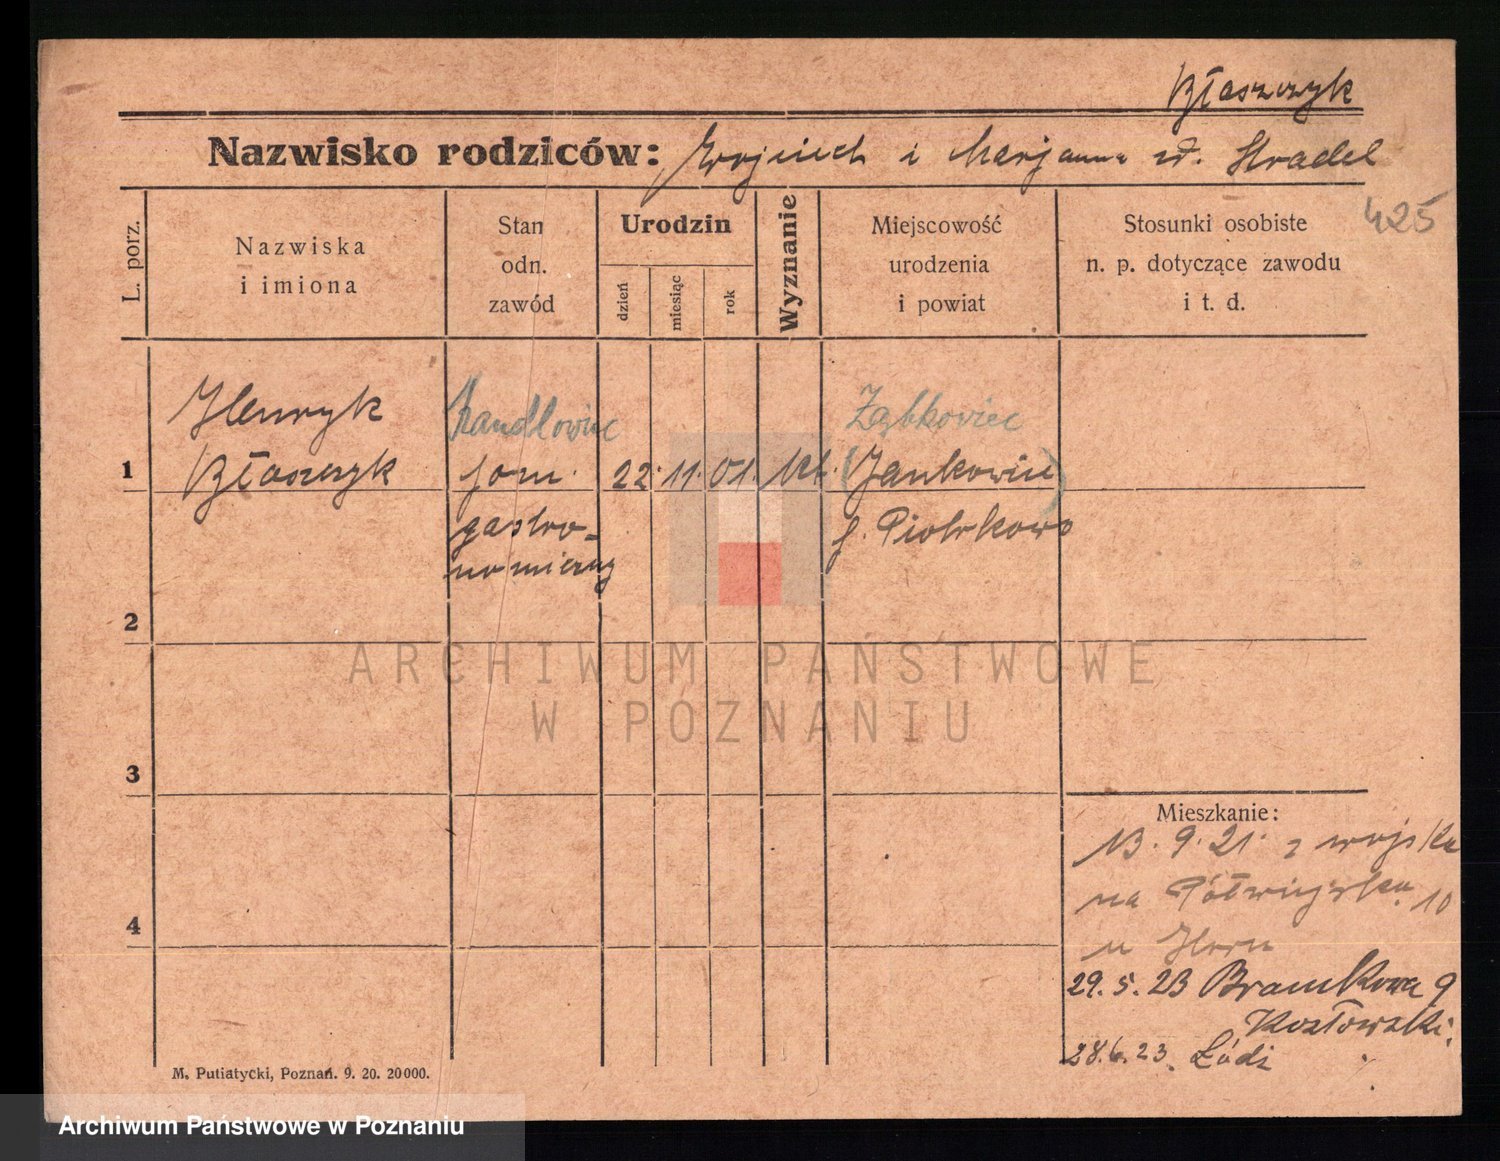 Błaszczyk
Nazwisko rodziców: Wojciech i Marjanna zd. Stradel
425
L. porz.
Nazwiska
i imiona
Stan
odn.
zawód
Urodzin
dzień
miesiąc
rok
Wyznanie
Miejscowość
urodzenia
i powiat
Stosunki osobiste
n. p. dotyczące zawodu
i t. d.
Henryk
Handlowiec
Ząbkowiec
1
Błaszczyk
pom.
22. 11. 01. kt.
(Jankowice)
gastro-
p. Piotrkowo
nomiczny
2
3
4
Mieszkanie:
13. 9. 21. z wojska
na Półwiejską 10
u
29. 5. 23 Bramkowa 9
Kozłowski.
28. 6. 23. Łódź
M. Putiatycki, Poznań. 9. 20. 20000.
ARCHIWUM PAŃSTWOWE
W POZNANIU
Archiwum Państwowe w Poznaniu